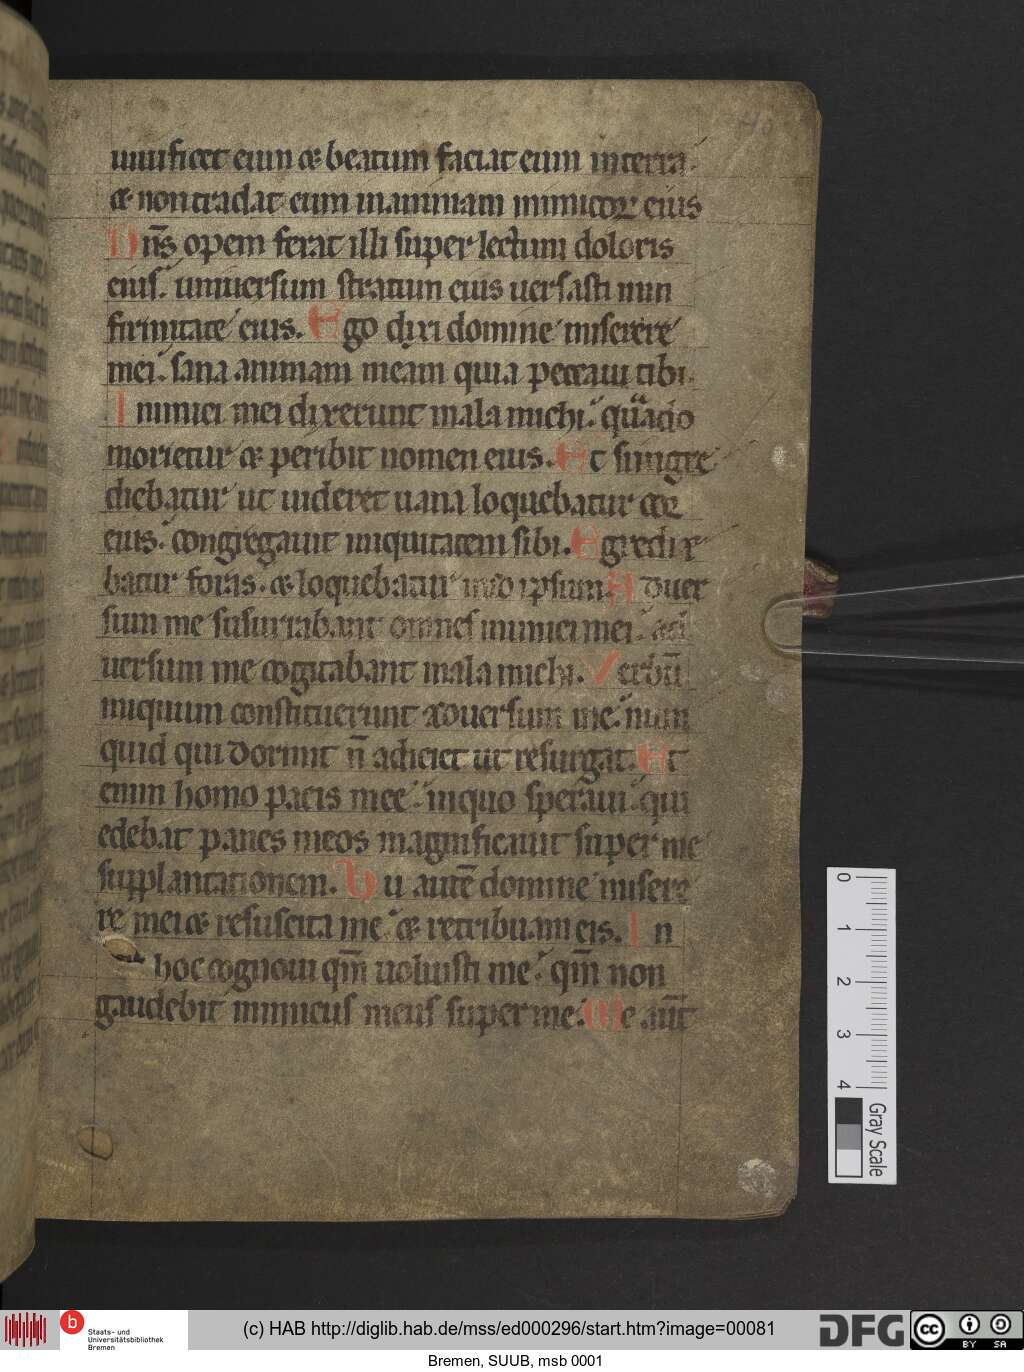 uiuificet eum & beatum faciat eum in terra.
& non tradat eum in animam inimicoꝝ eius
Dn̄s opem ferat illi super lectum doloris
eius. uniuersum stratum eius uersasti in in
firmitate eius. Ego dixi domine miserere
mei. sana animam meam quia peccaui tibi.
Inimici mei dixerunt mala michi. quando
morietur & peribit nomen eius. Et si ingre
diebatur ut uideret uana loquebatur cor
eius. congregauit iniquitatem sibi. Egredie
batur foras. & loquebatur in id ipsum. Aduer
sum me susurrabant omnes inimici mei. ad
uersum me cogitabant mala michi. Verbū
iniquum constituerunt aduersum me. num
quid qui dormit n̄ adiciet ut resurgat. Et
enim homo pacis mee. in quo speraui. qui
edebat panes meos magnificauit super me
supplantationem. Tu autē domine misere
re mei & resuscita me. & retribuam eis. In
hoc cognoui qm̄ uoluisti me. qm̄ non
gaudebit inimicus meus super me. Me aūt
0 1 2 3 4 Gray Scale
b Staats- und
Universitätsbibliothek
Bremen
(c) HAB http://diglib.hab.de/mss/ed000296/start.htm?image=00081
DFG
cc BY SA
Bremen, SUUB, msb 0001